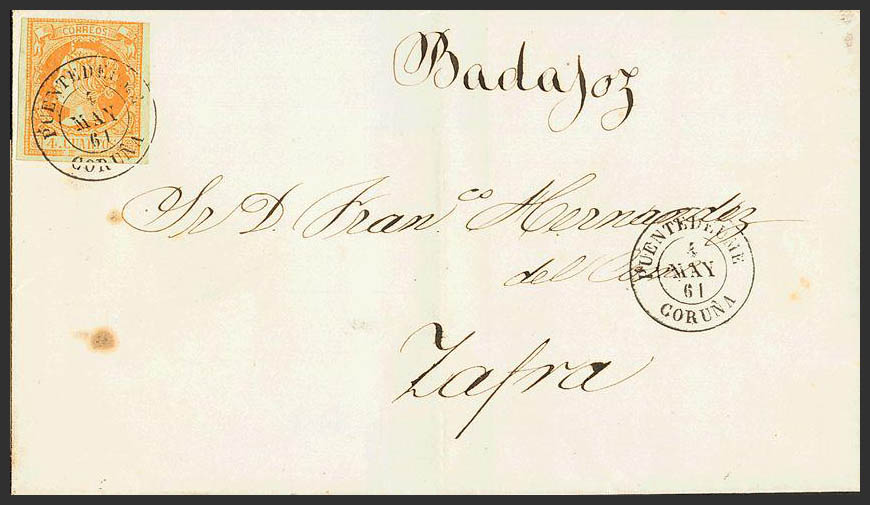 CORREOS
PUENTEDEUME
4
MAY
61
CORUÑA
4. CUA
Badajoz
Sr D. Fran.co Hernandez
del
Zafra
PUENTEDEUME
4
MAY
61
CORUÑA